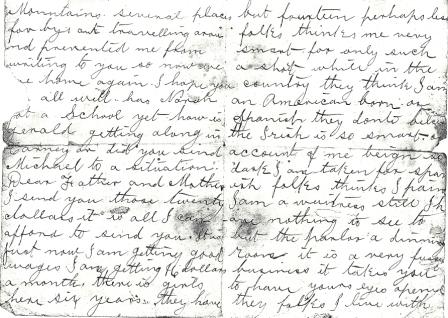 Mountains several places
for bys ant travelling arou
and prevented me from
writing to you so now we
me home again. I hope you
all will. has Norah
at a School yet how is
Gerald getting along in
or did you send
Michael to a situation.
Dear Father and Mother
I send you those twenty
dollars it is all I can
afford to send you this
just now I am getting good
wages I am getting 16 dollars
a month, there is girls
here six years, they have
but fourteen perhaps les
folks thinkes me very
smart for only such
a shot while in the
country they think I am
an American born or
Spanish they donte belie
the Irish is so smart
account of me beign s
dark I am taken for span
ish folkes thinks I Spain
I am a waitress still I h
are nothing to see to
but the parlor a dinning
room, it is a very fussy
business it takes
to have youre eyes opene
they folkes I live with